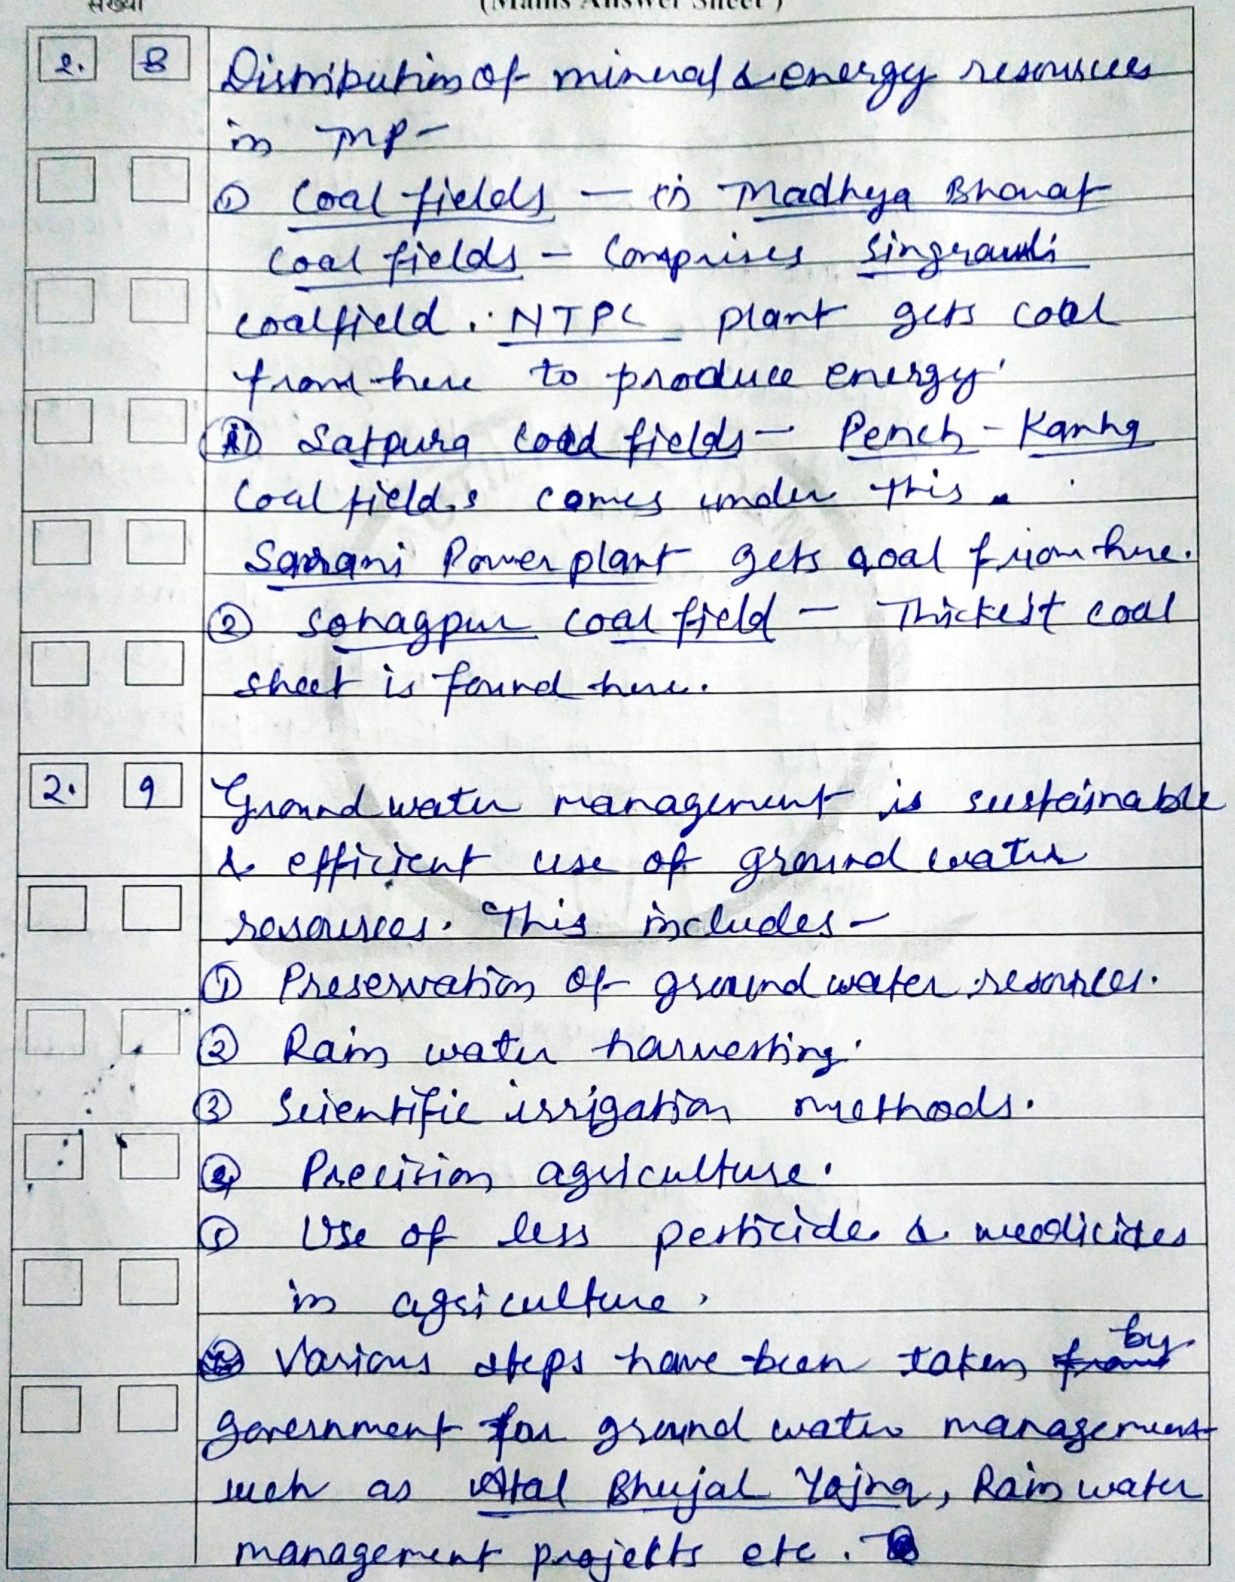 संख्या
(Mains Answer Sheet )
2. 8 Distribution of mineral & energy resources
in MP-
① Coal fields - in Madhya Bharat
Coal fields - Comprises Singrauli
coalfield. NTPC plant gets coal
from here to produce energy.
Satpura coal fields - Pench - Kanha
Coal fields comes under this.
Sarani Power plant gets coal from here.
② Sohagpur coal field - Thickest coal
sheet is found here.
2. 9 Ground water management is sustainable
& efficient use of ground water
resources. This includes -
① Preservation of ground water resources.
② Rain water harvesting.
③ Scientific irrigation methods.
④ Precision agriculture.
⑤ Use of less pesticide & weedicides
in agriculture.
Various steps have been taken by
government for ground water management
such as Atal Bhujal Yojna, Rain water
management projects etc.